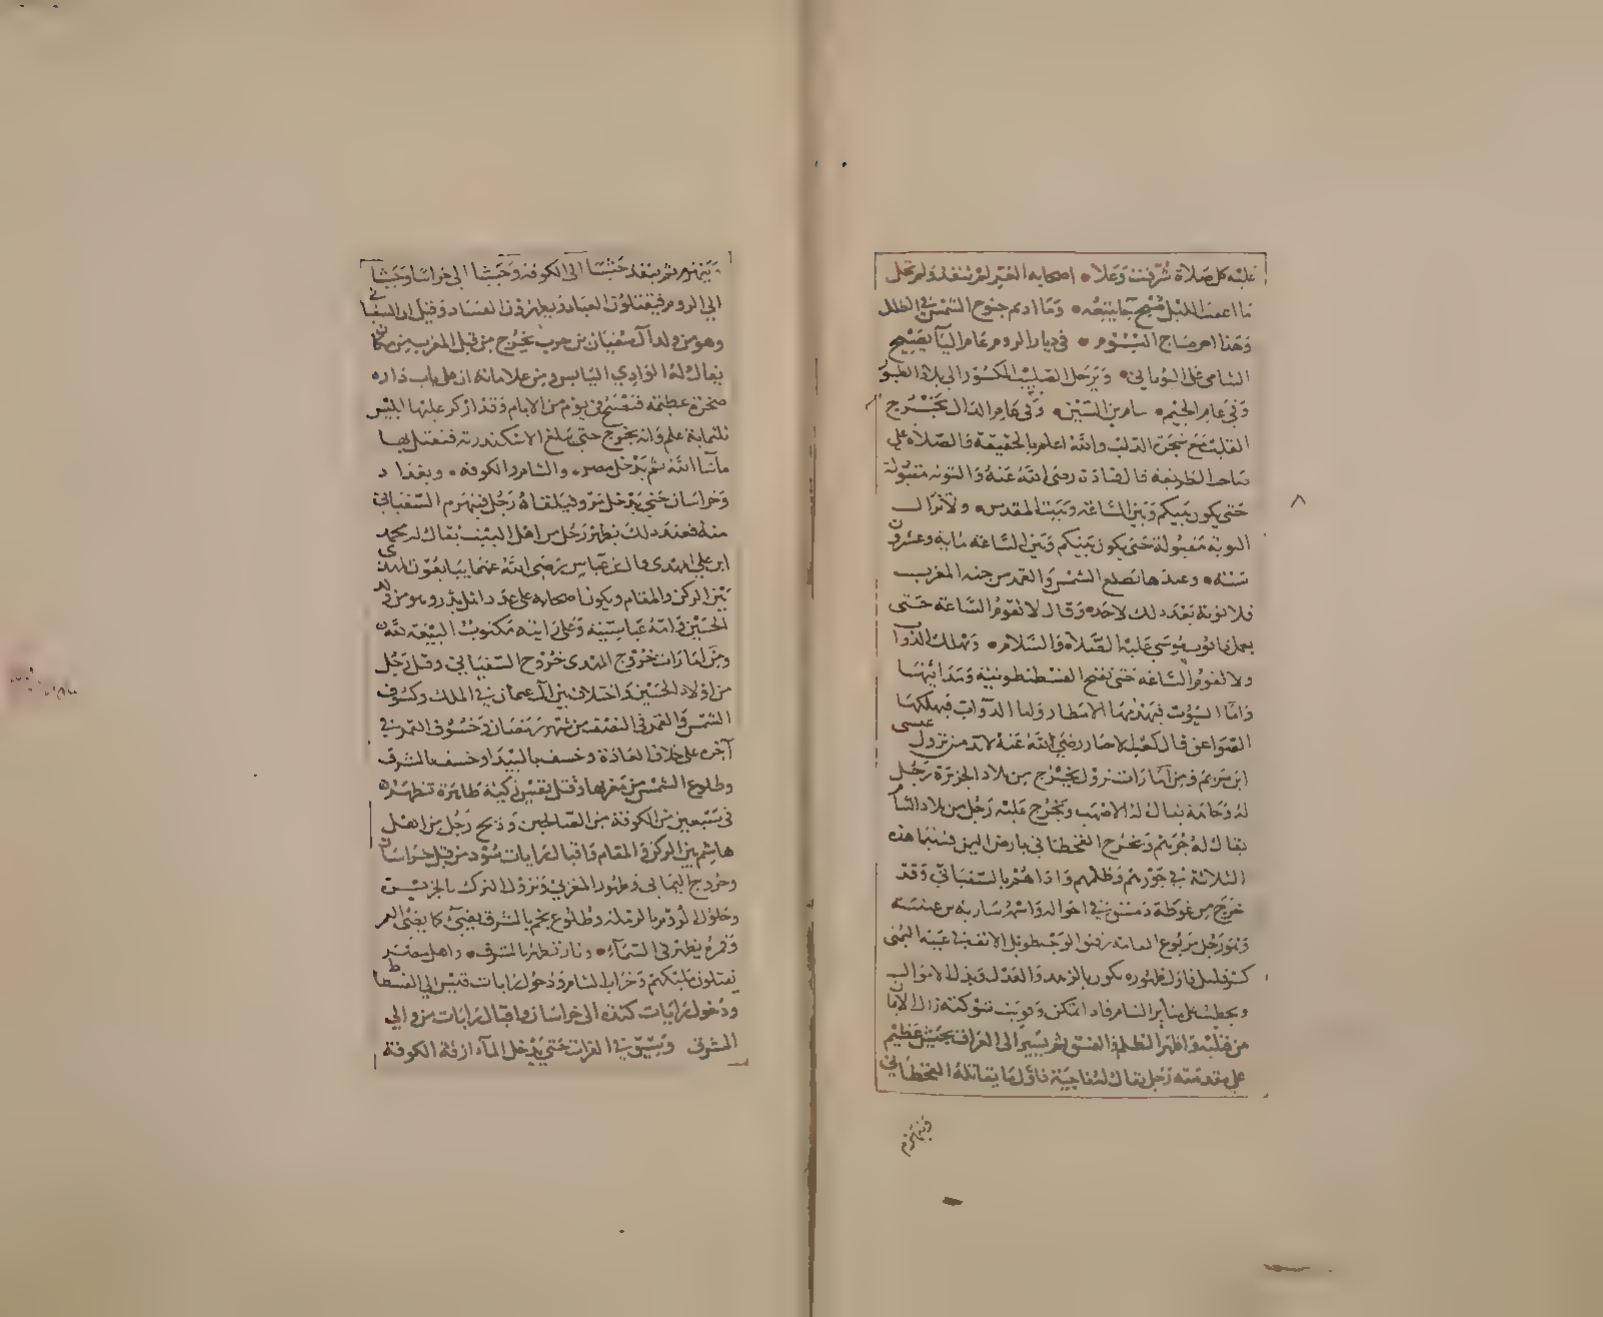 عليه كل صلاة شرفت وعلا • اصحابه الغير لم تنفد ولم تحل
ما اعمت الليل صبح جا يتبعه • وما ادم جنوح الشمس في الطلل
وهذا اخر • في ديار الروم عام اليا يصيح
الشامى على اليوناني • ويرحل الصليب المكسور الى بلاد
وفي عام الجيم • سر السين • وفي عام الدال يخرج
القلب من شجرة الدلب والله اعلم بالحقيقة والصلاة على
صاحب الطريقة قال قتادة رضى الله عنه والتوبة مقبولة
حتى يكون بينكم وبين الساعة وبيت المقدس • ولا تزال
التوبة مقبولة حتى يكون بينكم وبين الساعة ماية وعشرون
سنة • وعندها تطلع الشمس والقمر من جهة المغرب
فلا توبة بعد ذلك لاحد • وقال لا تقوم الساعة حتى
يعمل موسى عليه الصلاة والسلام • وتهلك الدواب
ولا تقوم الساعة حتى تفتح القسطنطونية ومدائنها
واما البيوت فيهدمها الامطار واما الدواب فيهلكها
الصواعق قال كعب الاحبار رضي الله عنه لابد من نزول عيسى
ابن مريم ومن امارات نزوله يخرج من بلاد الجزيرة رجل
له وحامة يقال له الاصهب ويخرج عليه رجل من بلاد الشام
يقال له جرهم ويخرج القحطاني بارض اليمن فبينما هذه
الثلاثة في جورهم وظلمهم واذا هم بالسفياني وقد
خرج من غوطة دمشق في اخواله واشهر
وهو رجل مربوع القامة رقيق الوجه طويل الانف في عينه اليمنى
كسر قليل فاول ظهوره يكون بالزهد والعدل ويبذل الاموال
ويخطب على منابر الشام فاذا تمكن وقويت شوكته زال الايمان
من قلبه واظهر الظلم والفسق ثم يسير الى العراق بجيش عظيم
على مقدمته رجل يقال له ناجية فاول ما يقاتله القحطاني
وينهزم
وينهزم ثم ينفذ جيشا الى الكوفة وجيشا الى خراسان وجيشا
الى الروم فيقتلون العباد ويظهرون الفساد وقيل ان السفياني
وهو من ولد آل سفيان بن حرب يخرج من قبل المغرب من مكان
يقال له الوادي اليابس ومن علاماته ان على باب داره
صخرة عظيمة فتصبح في يوم من الايام وقد ازكز عليها ابليس
ثلثماية علم وانه يخرج حتى يبلغ الاسكندرية فيقتل بها
ما شا الله ثم يدخل مصر • والشام والكوفة • وبغداد
وخراسان حتى يدخل مرو فيلقاه رجل فينهزم السفياني
منه فعند ذلك يظهر رجل من اهل البيت يقال له محمد
ابن علي المهدى قال ابن عباس رضى الله عنهما يبايعون المهدى
بين الركن والمقام ويكون اصحابه على عدد اهل بدر وهو من ولد
الحسين وامه عباسية وعلى رايته مكتوب البيعة لله
ومن امارات خروج المهدى خروج السفياني وقتل رجل
من اولاد الحسين واختلاف بني العباس في الملك وكسوف
الشمس والقمر في النصف من شهر رمضان وخسوف القمر في
آخره على خلاف العادة وخسف بالبيدا وخسف بالمشرق
وطلوع الشمس من مغربها وقتل نفس زكية طاهرة تظهر
في سبعين من الكوفة من الصالحين وذبح رجل من اهل
هاشم بين الركن والمقام واقبال رايات سود من قبل خراسان
وخروج اليماني وظهور المغربي ونزول الترك بالجزيرة
وحلول الروم بالرملة وطلوع نجم بالمشرق يضيئ كما يضئ القمر
وحمرة يظهر في السماء • ونار تظهر بالمشرق • واهل مصر
يقتلون ملكهم وخراب الشام ودخول رايات قيس الى الفسطاط
ودخول رايات كندة الى خراسان واقبال رايات مزو الى
المشرق ويبثق في الفرات حتى يدخل المآء ازقة الكوفة